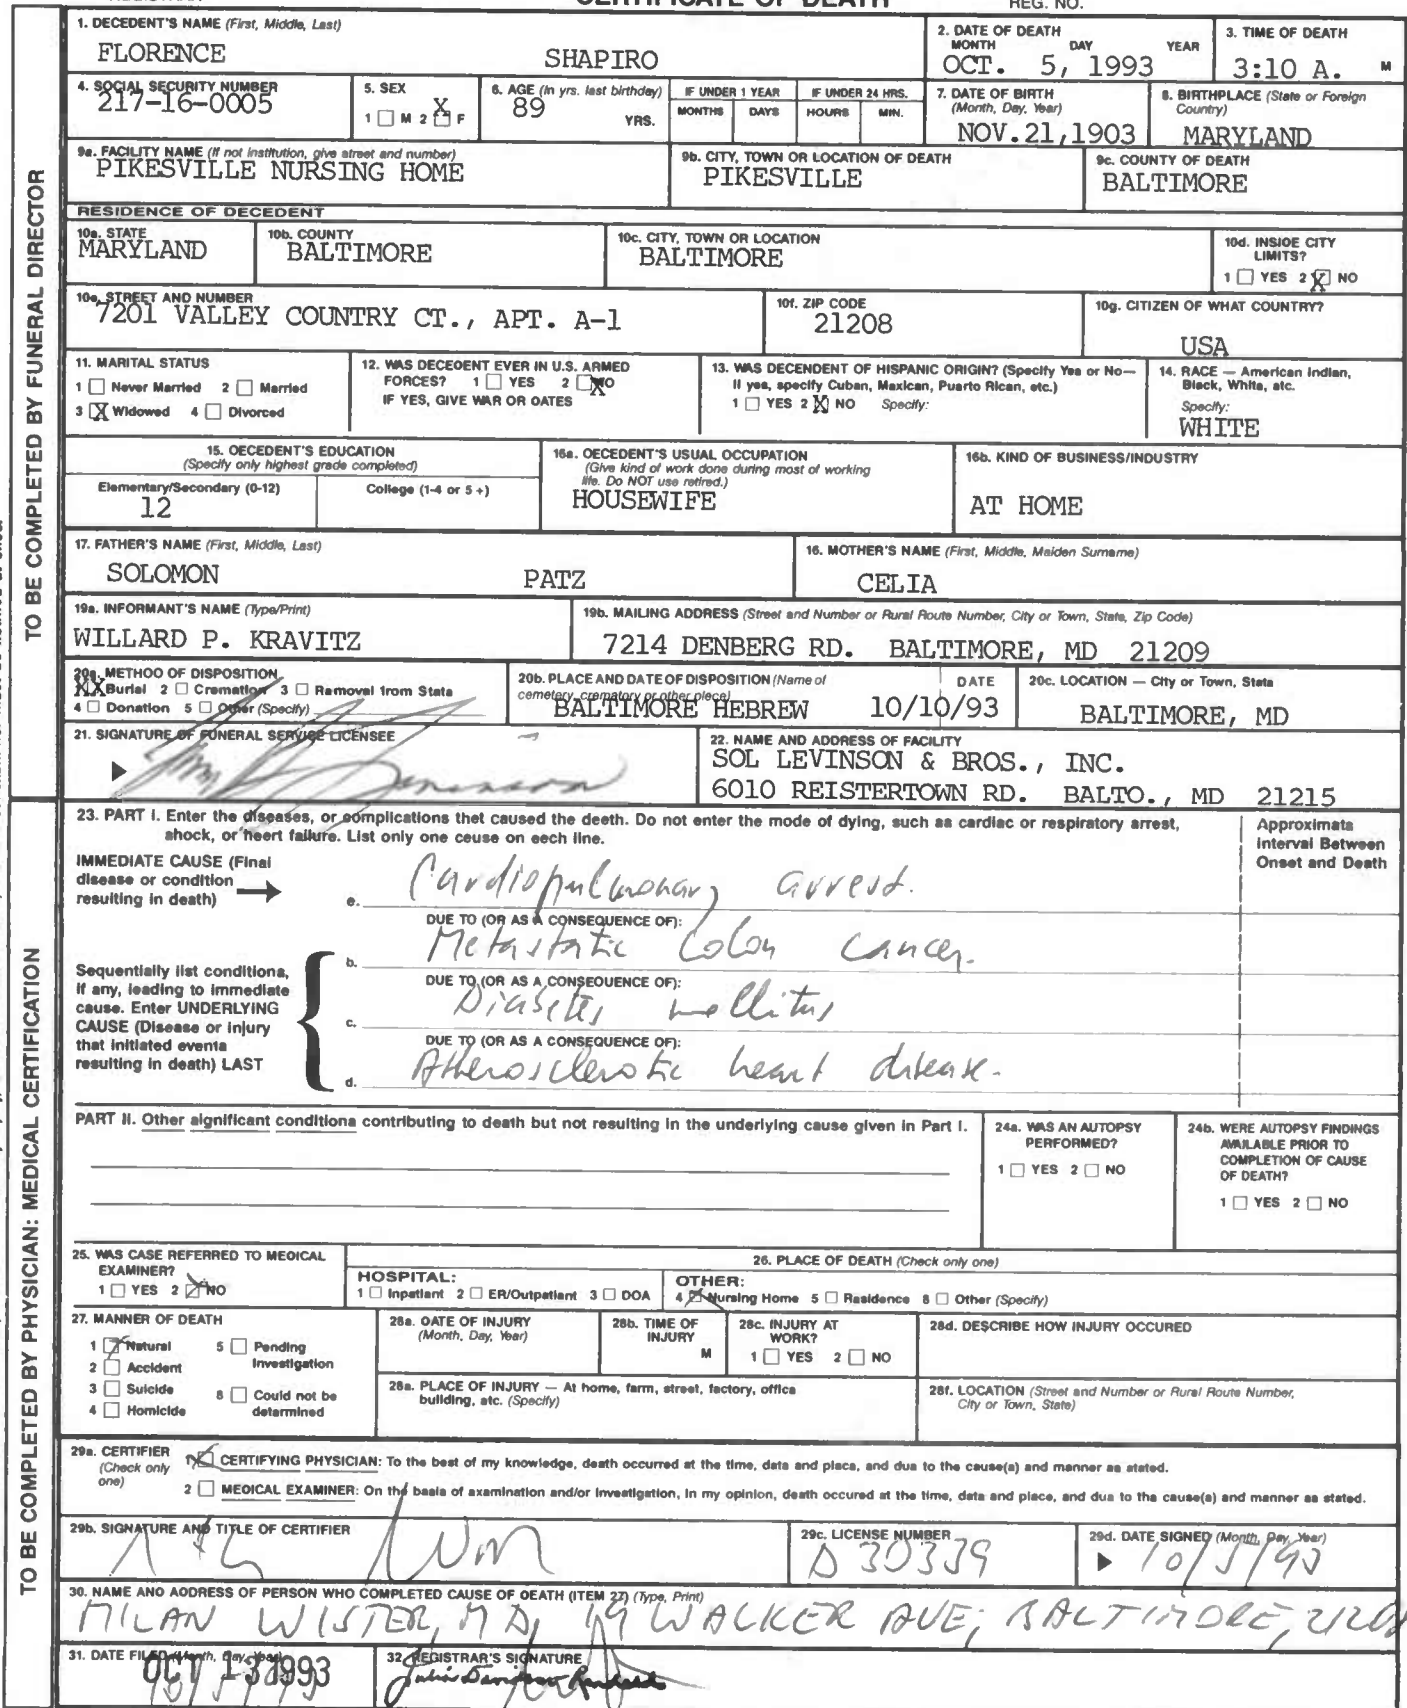 CERTIFICATE OF DEATH
REG. NO.
TO BE COMPLETED BY FUNERAL DIRECTOR
1. DECEDENT'S NAME (First, Middle, Last)
FLORENCE SHAPIRO
2. DATE OF DEATH
MONTH DAY YEAR
OCT. 5, 1993
3. TIME OF DEATH
3:10 A. M
4. SOCIAL SECURITY NUMBER
217-16-0005
5. SEX
1 M 2 X F
6. AGE (In yrs. last birthday)
89 YRS.
IF UNDER 1 YEAR
MONTHS DAYS
IF UNDER 24 HRS.
HOURS MIN.
7. DATE OF BIRTH
(Month, Day, Year)
NOV.21,1903
8. BIRTHPLACE (State or Foreign
Country)
MARYLAND
9a. FACILITY NAME (If not institution, give street and number)
PIKESVILLE NURSING HOME
9b. CITY, TOWN OR LOCATION OF DEATH
PIKESVILLE
9c. COUNTY OF DEATH
BALTIMORE
RESIDENCE OF DECEDENT
10a. STATE
MARYLAND
10b. COUNTY
BALTIMORE
10c. CITY, TOWN OR LOCATION
BALTIMORE
10d. INSIDE CITY
LIMITS?
1 YES 2 X NO
10e. STREET AND NUMBER
7201 VALLEY COUNTRY CT., APT. A-1
10f. ZIP CODE
21208
10g. CITIZEN OF WHAT COUNTRY?
USA
11. MARITAL STATUS
1 Never Married 2 Married
3 X Widowed 4 Divorced
12. WAS DECEDENT EVER IN U.S. ARMED
FORCES? 1 YES 2 X NO
IF YES, GIVE WAR OR DATES
13. WAS DECENDENT OF HISPANIC ORIGIN? (Specify Yes or No—
If yes, specify Cuban, Mexican, Puerto Rican, etc.)
1 YES 2 X NO Specify:
14. RACE — American Indian,
Black, White, etc.
Specify:
WHITE
15. DECEDENT'S EDUCATION
(Specify only highest grade completed)
Elementary/Secondary (0-12)
12
College (1-4 or 5 +)
16a. DECEDENT'S USUAL OCCUPATION
(Give kind of work done during most of working
life. Do NOT use retired.)
HOUSEWIFE
16b. KIND OF BUSINESS/INDUSTRY
AT HOME
17. FATHER'S NAME (First, Middle, Last)
SOLOMON PATZ
18. MOTHER'S NAME (First, Middle, Maiden Surname)
CELIA
19a. INFORMANT'S NAME (Type/Print)
WILLARD P. KRAVITZ
19b. MAILING ADDRESS (Street and Number or Rural Route Number, City or Town, State, Zip Code)
7214 DENBERG RD. BALTIMORE, MD 21209
20a. METHOD OF DISPOSITION
XX Burial 2 Cremation 3 Removal from State
4 Donation 5 Other (Specify)
20b. PLACE AND DATE OF DISPOSITION (Name of
cemetery, crematory or other place) DATE
BALTIMORE HEBREW 10/10/93
20c. LOCATION — City or Town, State
BALTIMORE, MD
21. SIGNATURE OF FUNERAL SERVICE LICENSEE
22. NAME AND ADDRESS OF FACILITY
SOL LEVINSON & BROS., INC.
6010 REISTERTOWN RD. BALTO., MD 21215
TO BE COMPLETED BY PHYSICIAN: MEDICAL CERTIFICATION
23. PART I. Enter the diseases, or complications that caused the death. Do not enter the mode of dying, such as cardiac or respiratory arrest,
shock, or heart failure. List only one cause on each line.
Approximate
Interval Between
Onset and Death
IMMEDIATE CAUSE (Final
disease or condition
resulting in death)
a. Cardiopulmonary arrest.
DUE TO (OR AS A CONSEQUENCE OF):
b. Metastatic Colon Cancer.
DUE TO (OR AS A CONSEQUENCE OF):
c. Diabetes mellitus
DUE TO (OR AS A CONSEQUENCE OF):
d. Atherosclerotic heart disease.
Sequentially list conditions,
if any, leading to immediate
cause. Enter UNDERLYING
CAUSE (Disease or injury
that initiated events
resulting in death) LAST
PART II. Other significant conditions contributing to death but not resulting in the underlying cause given in Part I.
24a. WAS AN AUTOPSY
PERFORMED?
1 YES 2 NO
24b. WERE AUTOPSY FINDINGS
AVAILABLE PRIOR TO
COMPLETION OF CAUSE
OF DEATH?
1 YES 2 NO
25. WAS CASE REFERRED TO MEDICAL
EXAMINER?
1 YES 2 NO
26. PLACE OF DEATH (Check only one)
HOSPITAL:
1 Inpatient 2 ER/Outpatient 3 DOA
OTHER:
4 Nursing Home 5 Residence 6 Other (Specify)
27. MANNER OF DEATH
1 Natural 5 Pending
Investigation
2 Accident
3 Suicide 6 Could not be
determined
4 Homicide
28a. DATE OF INJURY
(Month, Day, Year)
28b. TIME OF
INJURY
M
28c. INJURY AT
WORK?
1 YES 2 NO
28d. DESCRIBE HOW INJURY OCCURED
28e. PLACE OF INJURY — At home, farm, street, factory, office
building, etc. (Specify)
28f. LOCATION (Street and Number or Rural Route Number,
City or Town, State)
29a. CERTIFIER
(Check only
one)
1 CERTIFYING PHYSICIAN: To the best of my knowledge, death occurred at the time, date and place, and due to the cause(s) and manner as stated.
2 MEDICAL EXAMINER: On the basis of examination and/or investigation, in my opinion, death occured at the time, date and place, and due to the cause(s) and manner as stated.
29b. SIGNATURE AND TITLE OF CERTIFIER
29c. LICENSE NUMBER
D 30339
29d. DATE SIGNED (Month, Day, Year)
10/5/93
30. NAME AND ADDRESS OF PERSON WHO COMPLETED CAUSE OF DEATH (ITEM 27) (Type, Print)
MILAN WISTER, MD, 19 WALKER AVE, BALTIMORE, 21208
31. DATE FILED (Month, Day, Year)
OCT 13 1993
32. REGISTRAR'S SIGNATURE